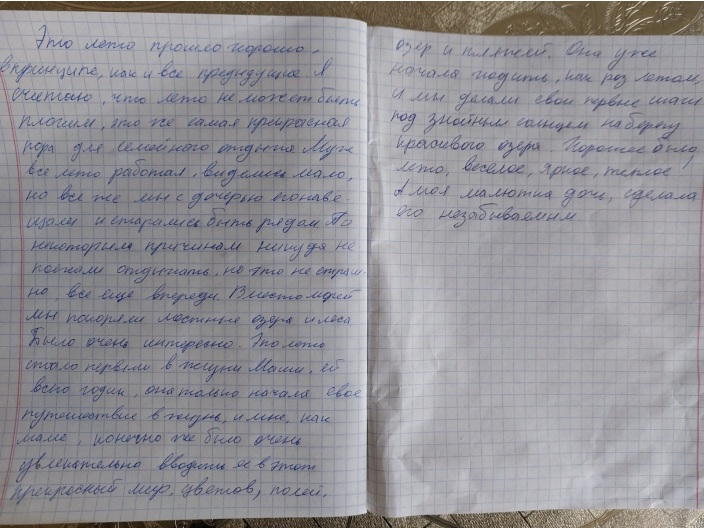 Это лето прошло хорошо,
в принципе, как и все предыдущие. Я
считаю, что лето не может быть
плохим, это же самая прекрасная
пора для семейного отдыха. Муж
все лето работал, виделись мало,
но все же мы с дочерью его наве-
щали и старались быть рядом. По
некоторым причинам никуда не
поехали отдыхать, но это не страш-
но, все еще впереди. Вместо морей
мы покоряли местные озера и леса.
Было очень интересно. Это лето
стало первым в жизни Маши, ей
всего годик, она только начала свое
путешествие в жизнь, и мне, как
маме, конечно же было очень
увлекательно вводить ее в этот
прекрасный мир, цветов, полей,
озер и пляжей. Она уже
начала ходить, как раз летом,
и мы делали свои первые шаги
под знойным солнцем на берегу
красивого озера. Хорошее было
лето, веселое, яркое, теплое
А моя малютка дочь, сделала
его незабываемым